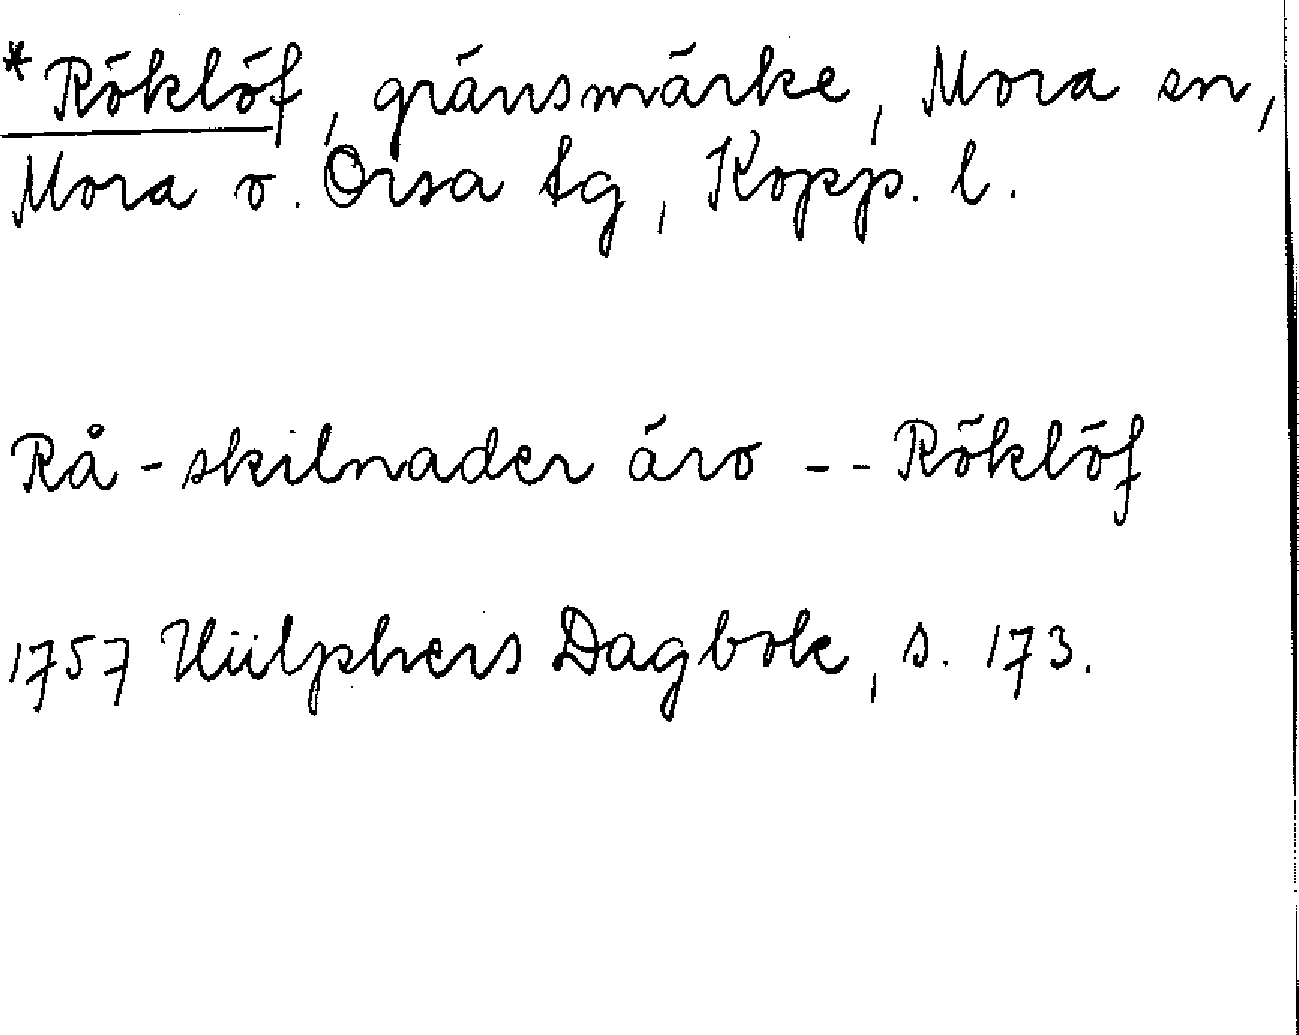 *Röklöf, gränsmärke, Mora sn,
Mora o. Orsa tg, Kopp. l.
Rå-skilnader äro -- Röklöf
1757 Hülphers Dagbok, s. 173.